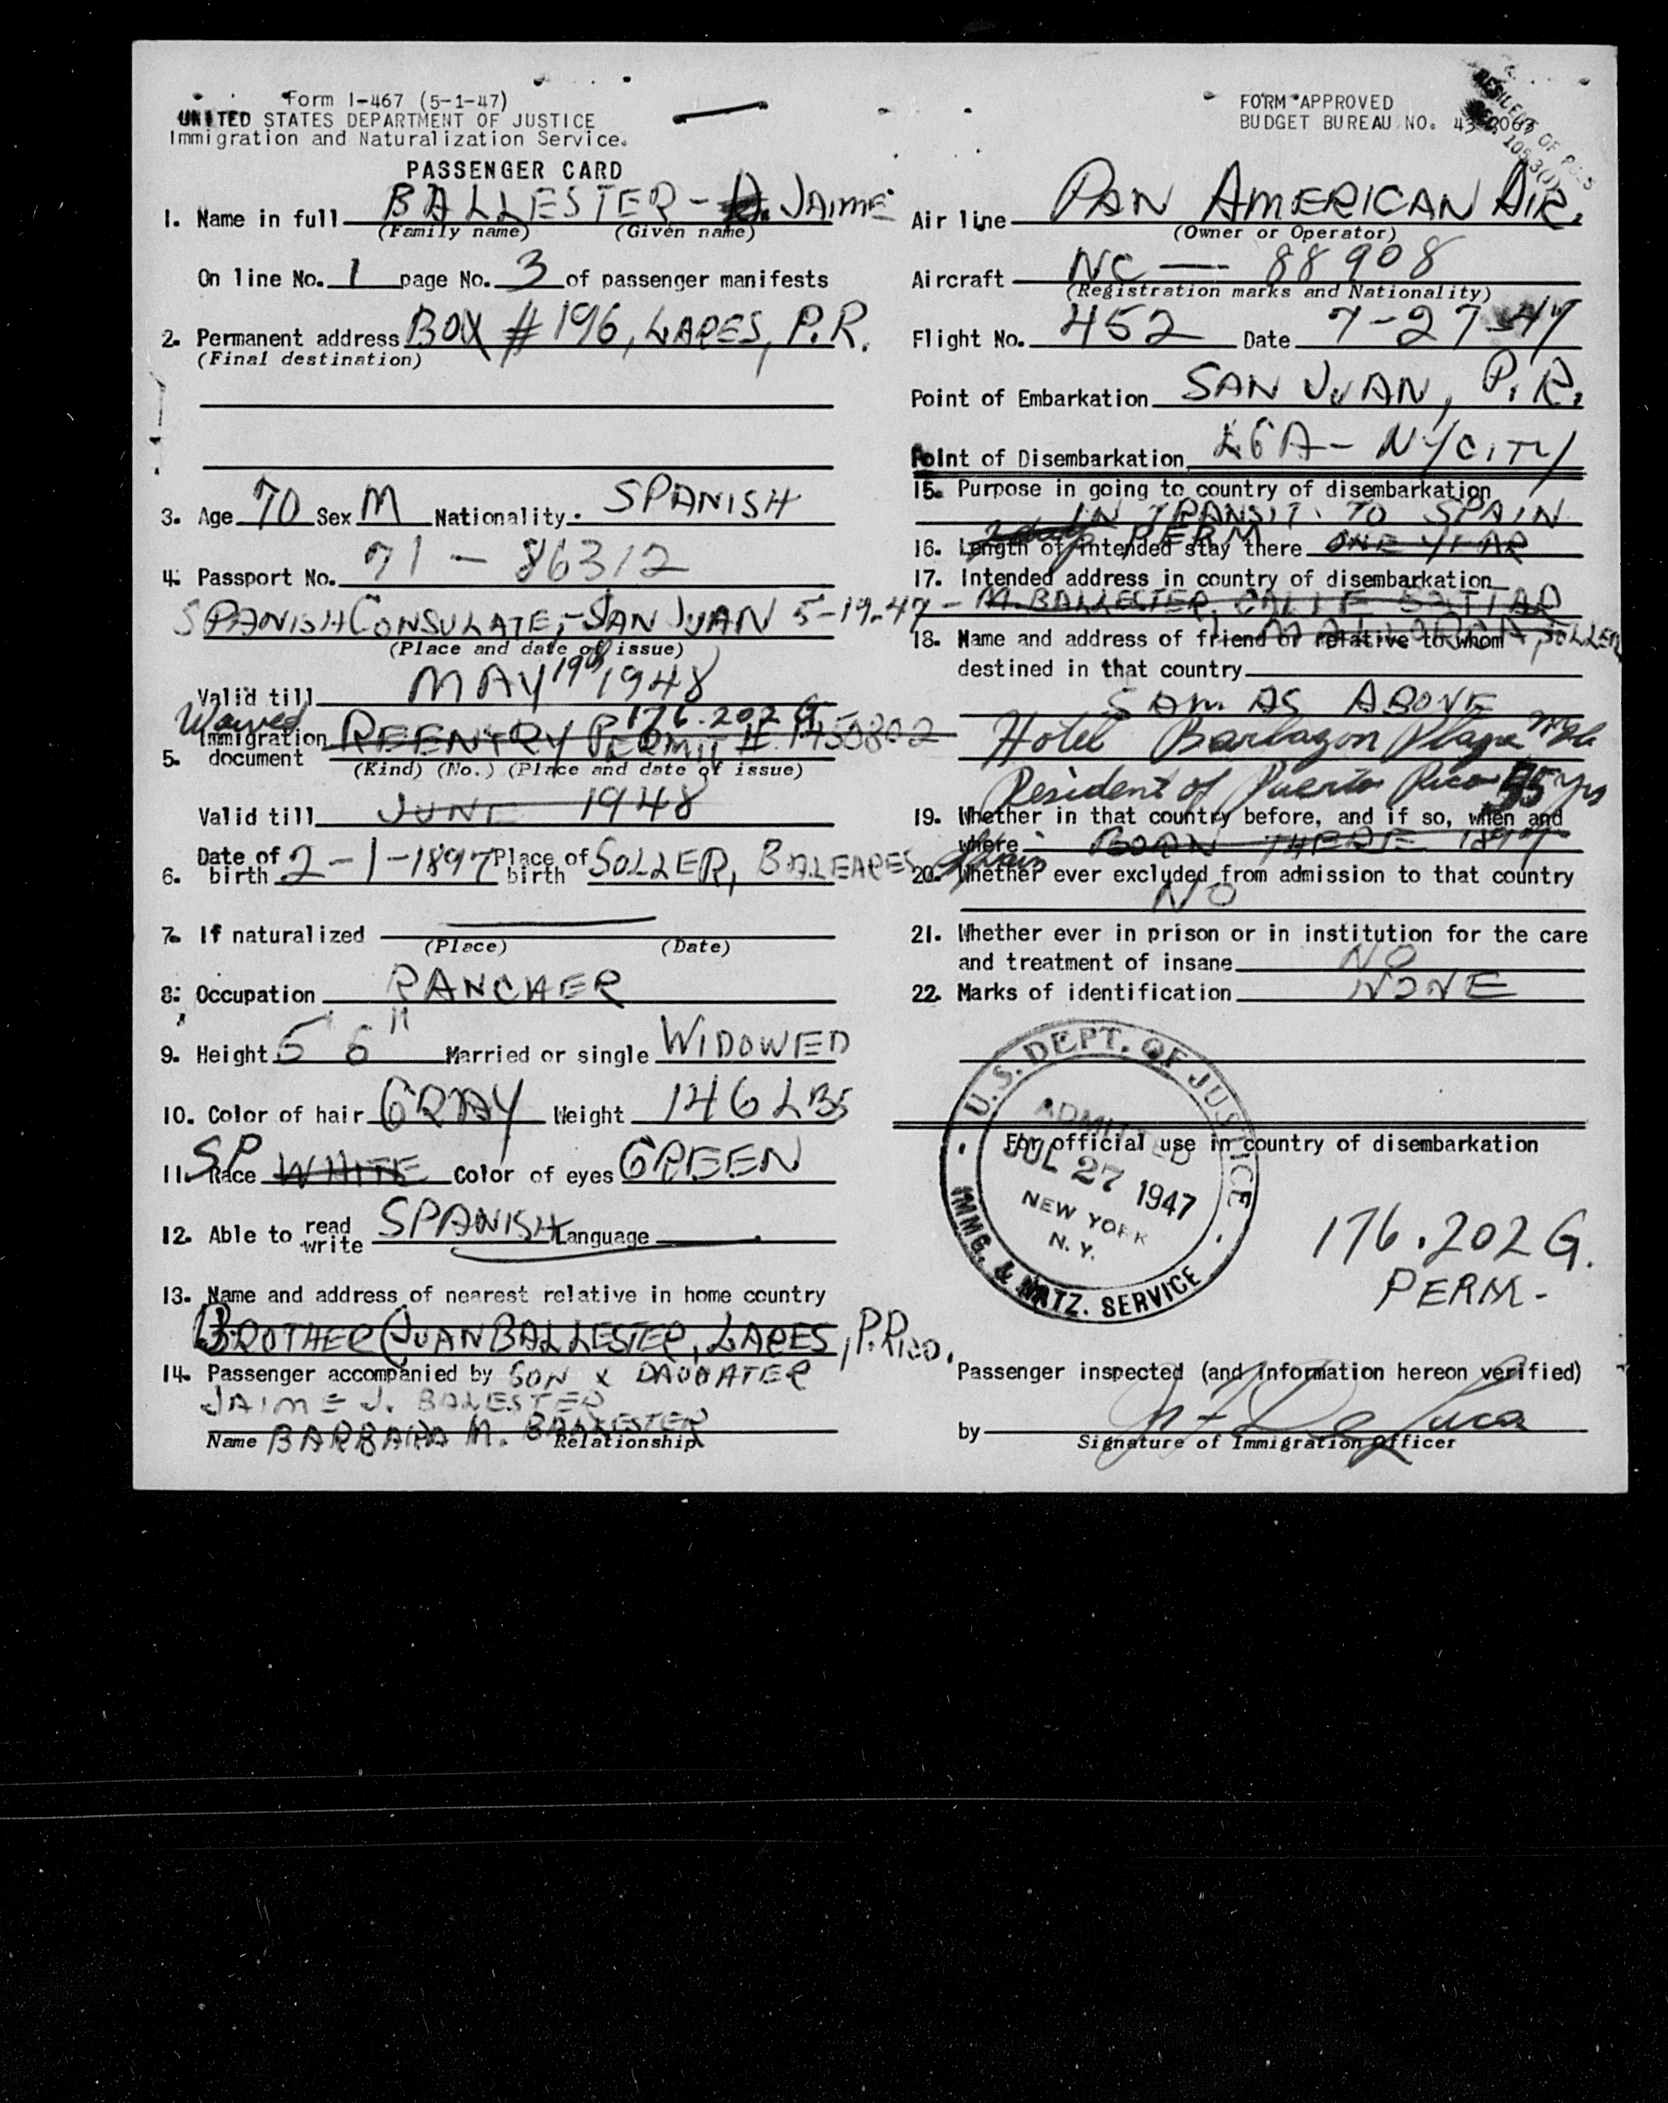 Form I-467 (5-1-47)
UNITED STATES DEPARTMENT OF JUSTICE
Immigration and Naturalization Service.
PASSENGER CARD
1. Name in full BALLESTER - JAIME
(Family name) (Given name)
On line No. 1 page No. 3 of passenger manifests
2. Permanent address BOX # 196, LARES, P.R.
(Final destination)
3. Age 70 Sex M Nationality. SPANISH
4. Passport No. 71 - 86312
SPANISH CONSULATE, - SAN JUAN 5-19-47
(Place and date of issue)
Valid till MAY 19th 1948
Waived 176.202 G
5. Immigration document REENTRY PERMIT # 1450802
(Kind) (No.) (Place and date of issue)
Valid till JUNE 1948
6. Date of birth 2-1-1897 Place of birth SOLLER, BALEARES Spain
7. If naturalized
(Place) (Date)
8. Occupation RANCHER
9. Height 5 6" Married or single WIDOWED
10. Color of hair GRAY Weight 146 LBS
11. Race SP WHITE Color of eyes GREEN
12. Able to read write SPANISH Language
13. Name and address of nearest relative in home country
BROTHER (JUAN BALLESTER, LARES, P. RICO.
14. Passenger accompanied by SON & DAUGHTER
JAIME J. BALLESTER
Name BARBARA M. BALLESTER Relationship
FORM APPROVED
BUDGET BUREAU NO.
RESIDENT OF
Air line PAN AMERICAN AIR.
(Owner or Operator)
Aircraft NC — 88908
(Registration marks and Nationality)
Flight No. 452 Date 7-27-47
Point of Embarkation SAN JUAN, P.R.
Point of Disembarkation LGA - NY CITY
15. Purpose in going to country of disembarkation
IN TRANSIT TO SPAIN
16. Length of intended stay there PERM ONE YEAR
17. Intended address in country of disembarkation
M. BALLESTER, CALLE
MALLORCA, SOLLER
18. Name and address of friend or relative to whom
destined in that country
SAM AS ABOVE
Hotel Barbazon Plaza
Resident of Puerto Rico 55 yrs
19. Whether in that country before, and if so, when and
where BORN THERE 1897
20. Whether ever excluded from admission to that country
NO
21. Whether ever in prison or in institution for the care
and treatment of insane NO
22. Marks of identification NONE
U.S. DEPT. OF JUSTICE
ADMITTED
JUL 27 1947
NEW YORK
N.Y.
IMMG. & NATZ. SERVICE
For official use in country of disembarkation
176.202 G.
PERM -
Passenger inspected (and information hereon verified)
by De Luca
Signature of Immigration Officer